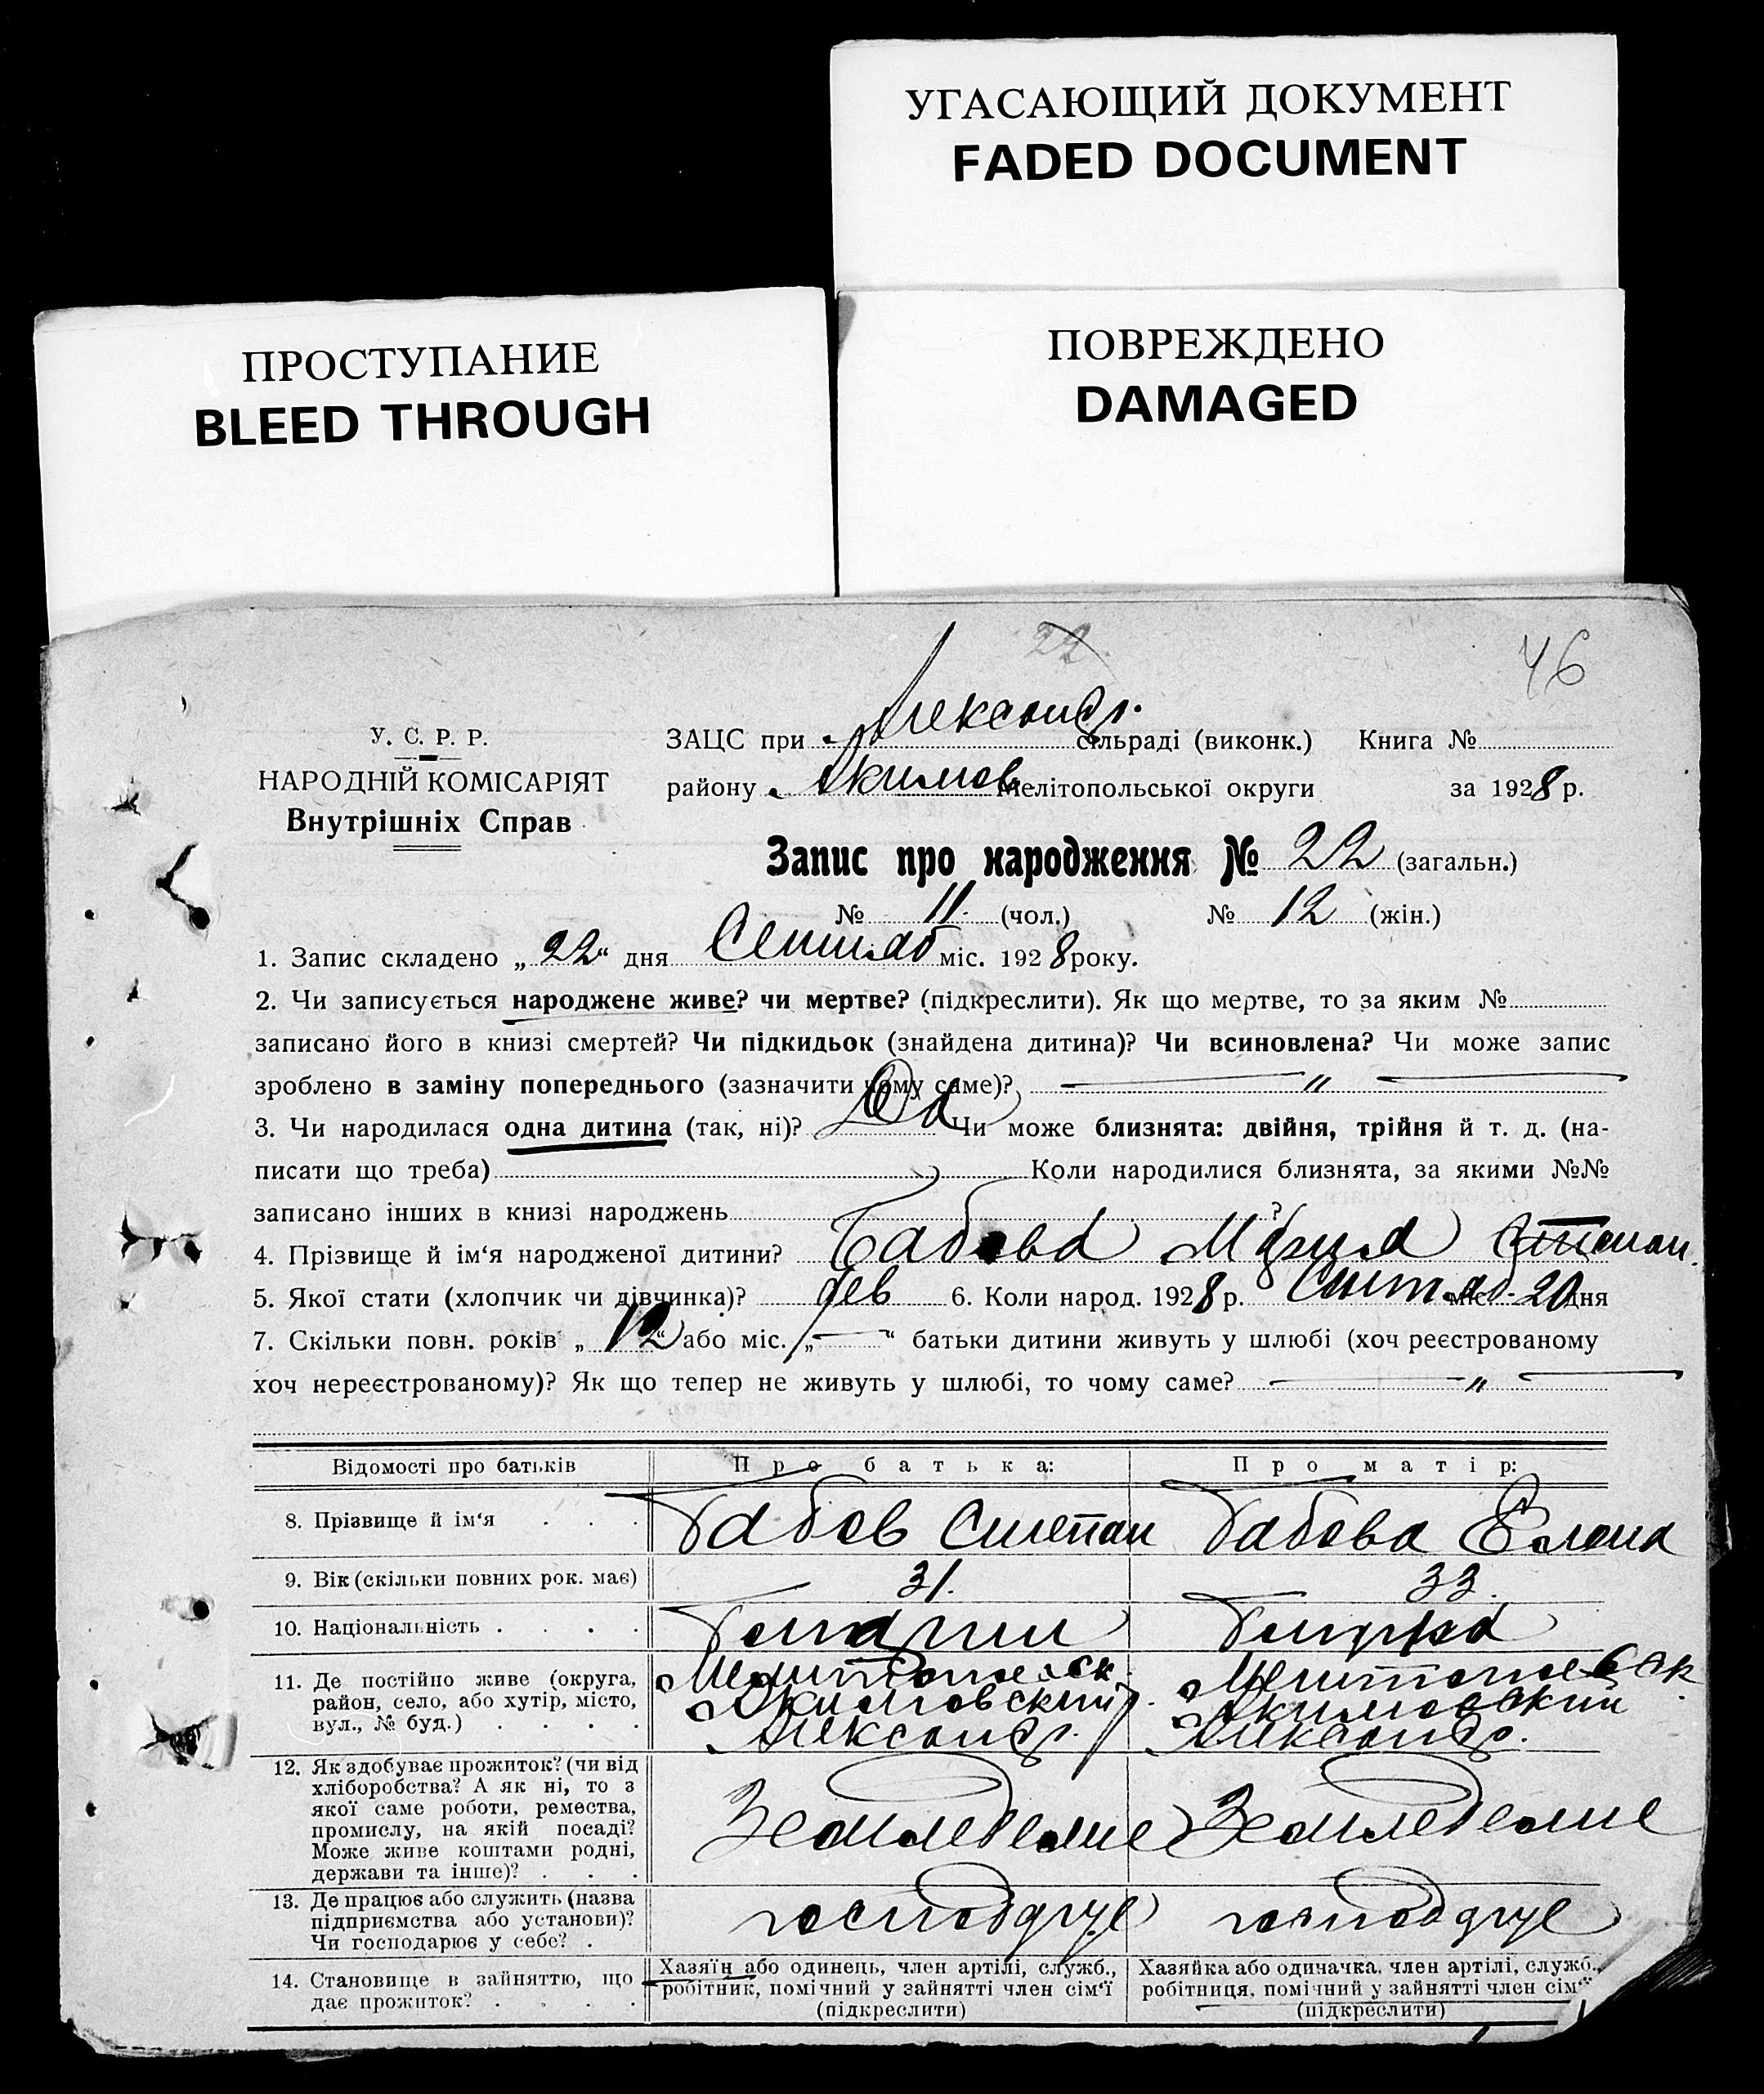 УГАСАЮЩИЙ ДОКУМЕНТ
FADED DOCUMENT
ПРОСТУПАНИЕ
BLEED THROUGH
ПОВРЕЖДЕНО
DAMAGED
22
46
У. С. Р. Р.
НАРОДНІЙ КОМІСАРІЯТ
Внутрішніх Справ
ЗАЦС при Александр. сільраді (виконк.) Книга №
району Акимов Мелітопольської округи за 1928 р.
Запис про народження № 22 (загальн.)
№ 11. (чол.) № 12 (жін.)
1. Запис складено „22“ дня Сентяб міс. 1928 року.
2. Чи записується народжене живе? чи мертве? (підкреслити). Як що мертве, то за яким №
записано його в книзі смертей? Чи підкидьок (знайдена дитина)? Чи всиновлена? Чи може запис
зроблено в заміну попереднього (зазначити чому саме)? — „ —
3. Чи народилася одна дитина (так, ні)? Да Чи може близнята: двійня, трійня й т. д. (на-
писати що треба) Коли народилися близнята, за якими №№
записано інших в книзі народжень ?
4. Прізвище й ім‘я народженої дитини? Бабова Мария Степан.
5. Якої стати (хлопчик чи дівчинка)? дев 6. Коли народ. 1928 р. Сентяб. міс. 20 дня
7. Скільки повн. років „12“ або міс. „—“ батьки дитини живуть у шлюбі (хоч реєстрованому
хоч нереєстрованому)? Як що тепер не живуть у шлюбі, то чому саме? — „ —
Відомості про батьків Про батька: Про матір:
8. Прізвище й ім‘я . . . Бабов Степан Бабова Елена
9. Вік (скільки повних рок. має) 31. 33.
10. Національність . . . .
11. Де постійно живе (округа, Мелитопольск. Мелитопольск.
район, село, або хутір, місто, Акимовский р. Акимовский
вул., № буд.) . . . . Александр. Александр.
12. Як здобуває прожиток? (чи від
хліборобства? А як ні, то з
якої саме роботи, ремества,
промислу, на якій посаді? Земледелие Земледелие
Може живе коштами родні,
держави та інше)? . . .
13. Де працює або служить (назва
підприємства або установи)?
Чи господарює у себе? .
14. Становище в зайняттю, що
дає прожиток? . . . .
Хазяїн або одинець, член артілі, служб.,
робітник, помічний у зайнятті член сім‘ї
(підкреслити)
Хазяйка або одиначка, член артілі, служб.,
робітниця, помічний у зайнятті член сім‘ї
(підкреслити)